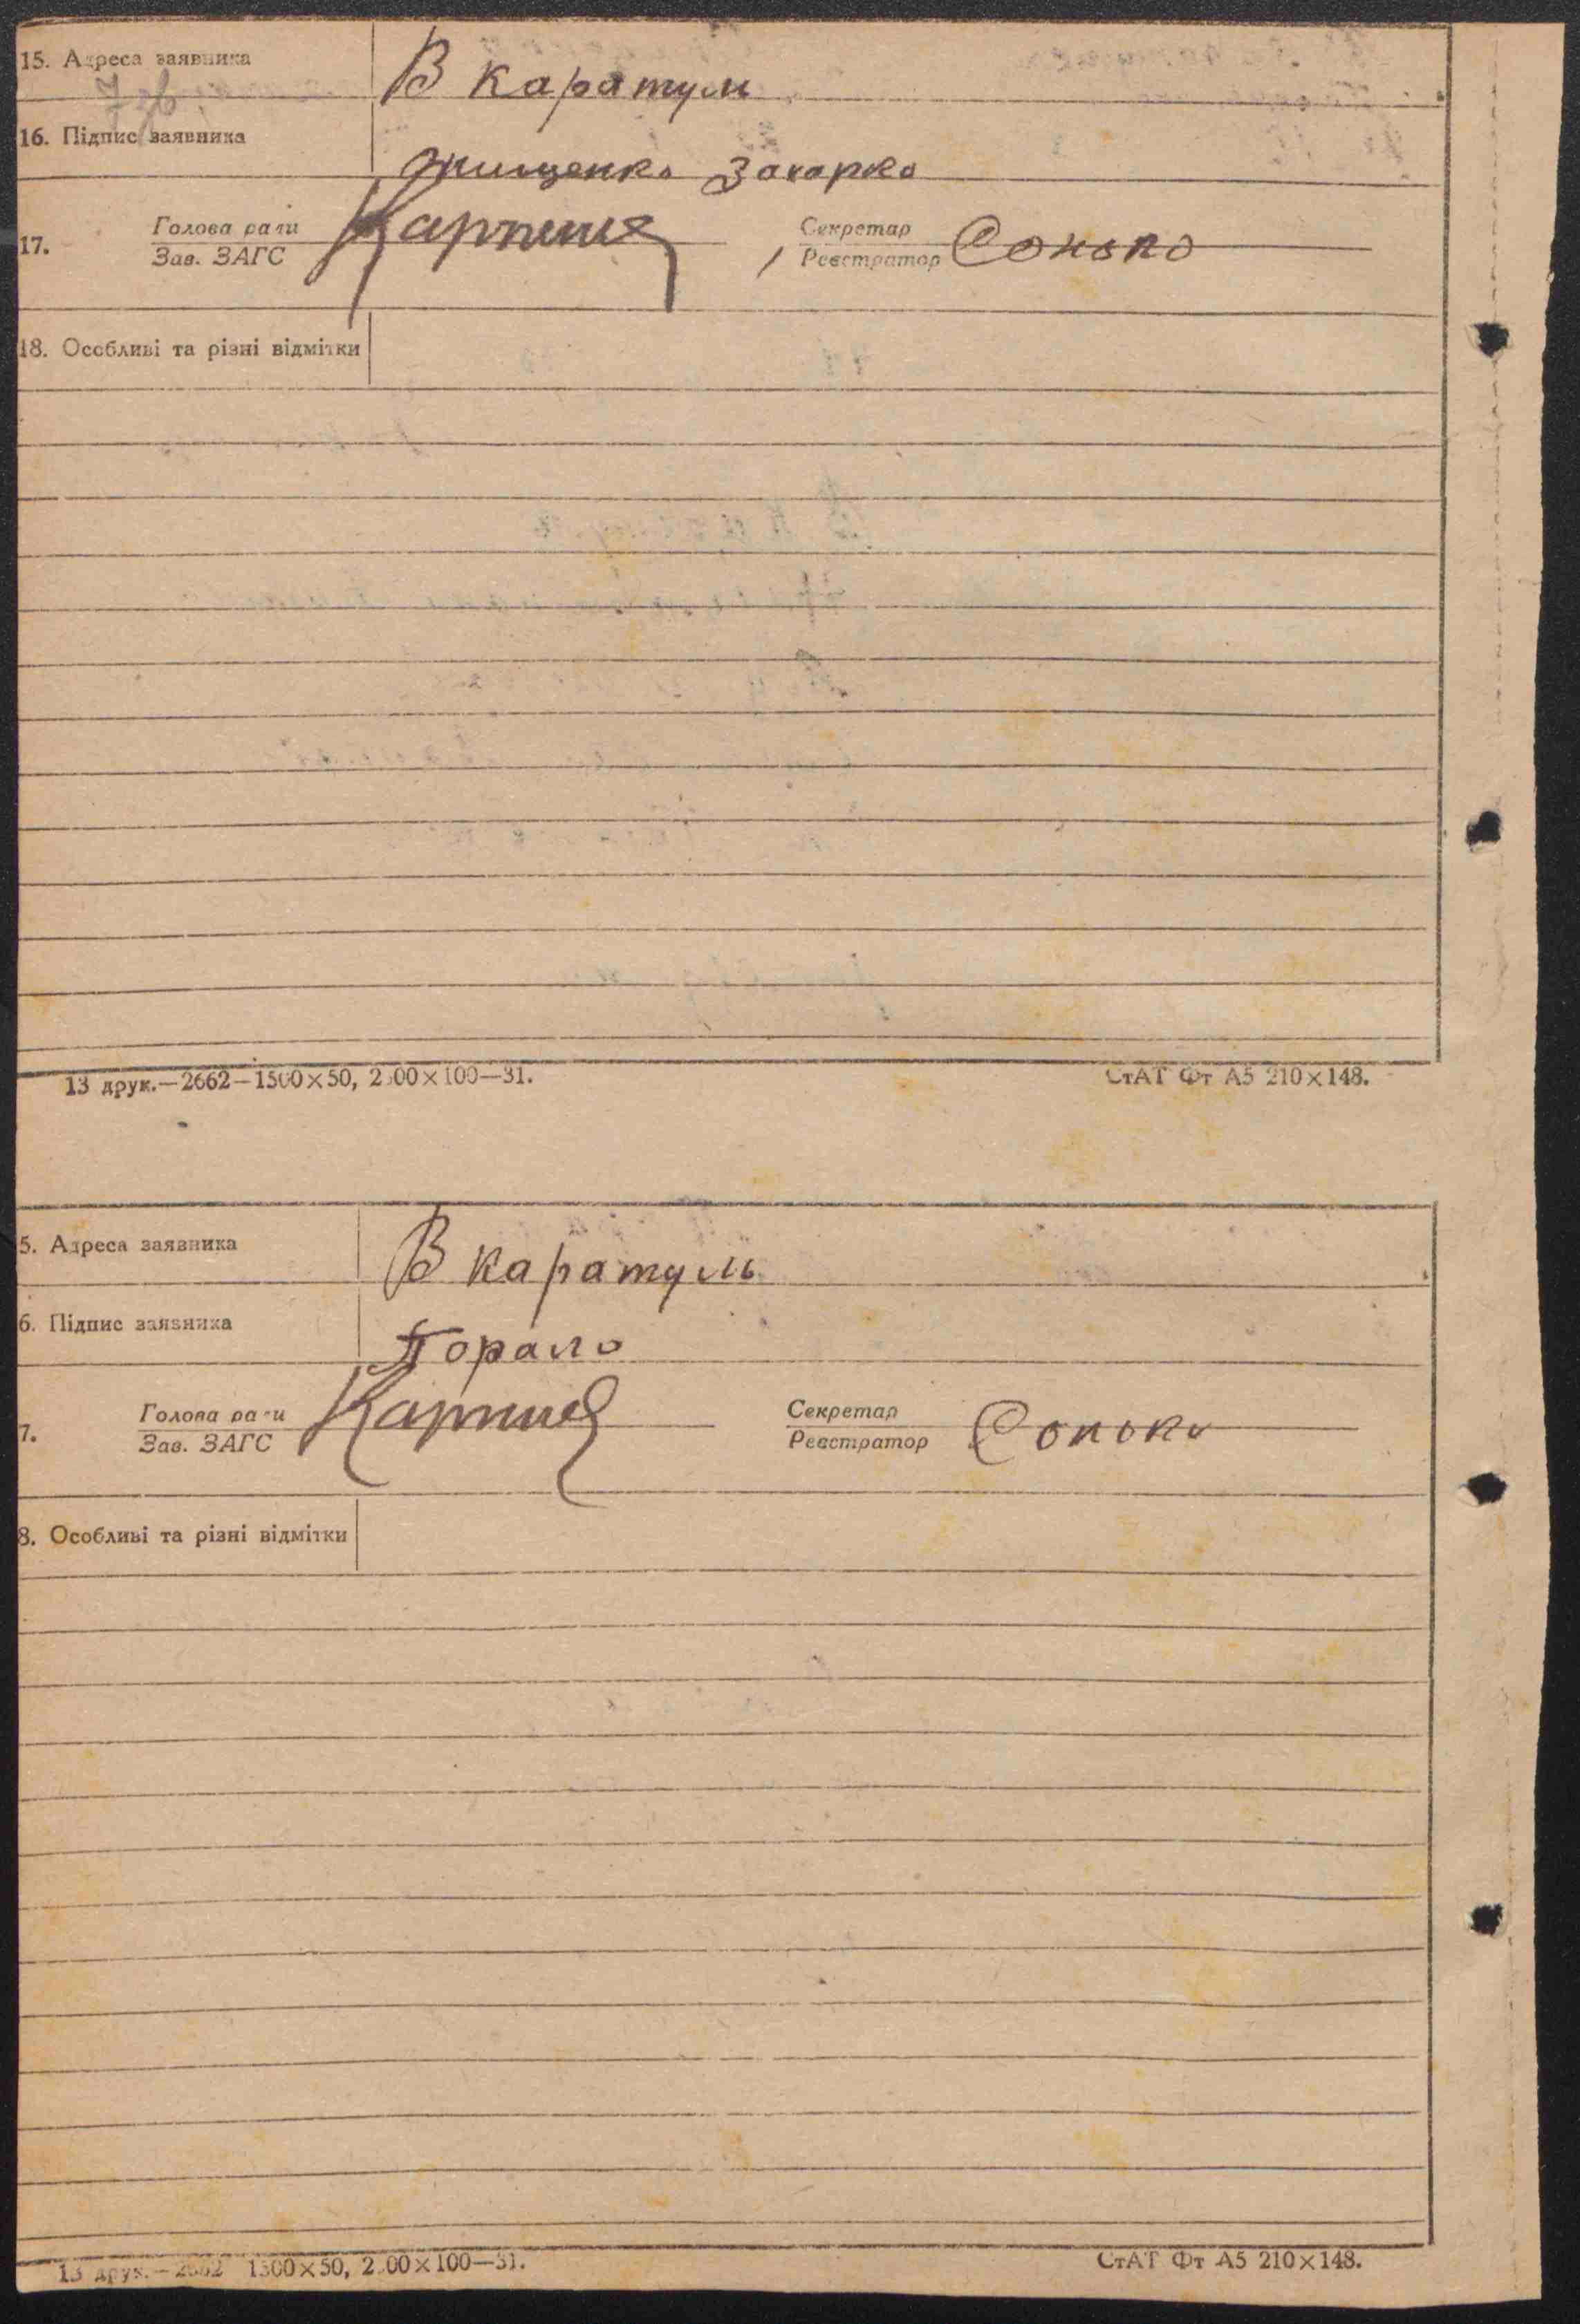 15. Адреса заявника
В Каратуль
16. Підпис заявника
Онищенко Захарко
17. Голова ради
Зав. ЗАГС
Секретар
Реєстратор
18. Особливі та різні відмітки
13 друк.—2662—1500×50, 2500×100—31.
СтАТ Фт А5 210×148.
5. Адреса заявника
В Каратуль
6. Підпис заявника
Порало
7. Голова ради
Зав. ЗАГС
Секретар
Реєстратор
8. Особливі та різні відмітки
13 друк.—2662 1500×50, 2500×100—31.
СтАТ Фт А5 210×148.